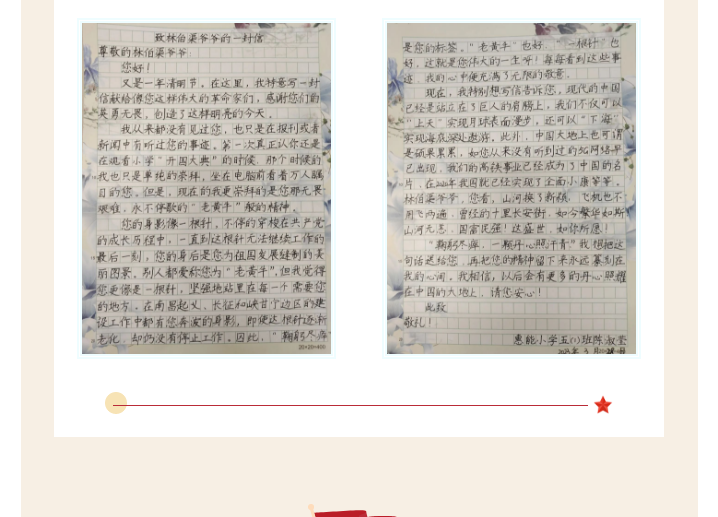 致林伯渠爷爷的一封信
尊敬的林伯渠爷爷:
您好!
又是一年清明节。在这里,我特意写一封
信献给像您这样伟大的革命家们,感谢您们的
英勇无畏,创造了这样明亮的今天。
我从来都没有见过您,也只是在报刊或者
新闻中有听过您的事迹。第一次真正认你还是
在观看小学"开国大典"的时候,那个时候的
我也只是单纯的崇拜,坐在电脑前看着万人瞩
目的您。但是,现在的我更崇拜的是您那无畏
艰难,永不停歇的"老黄牛"般的精神。
您的身影像一根针,不停的穿梭在共产党
的成长历程中,一直到这根针无法继续工作的
最后一刻,您的身后是您为祖国发展缝制的美
丽图景,别人都爱称您为"老黄牛",但我觉得
您更像是一根针,坚强地站里在每一个需要您
的地方。在南昌起义、长征和陕甘宁边区的建
设工作中都有您奔波的身影,即使这根针逐渐
老化,却仍没有停止工作。因此,"鞠躬尽瘁"
20×20=400
是您的标签。"老黄牛"也好,"一根针"也
好,这就是您伟大的一生呀!每每看到这些事
迹,我的心中便充满了无限的敬意。
现在,我特别想写信告诉您,现代的中国
已经是站立在了巨人的肩膀上,我们不仅可以
"上天"实现月球表面漫步,还可以"下海"
实现海底深处遨游。此外,中国大地上也可谓
是硕果累累,如您从来没有听到过的5G网络早
已出现,我们的高铁事业已经成为了中国的名
片,在2020年我国就已经实现了全面小康等等。
林伯渠爷爷,您看,山河换了新颜,飞机也不
用飞两遍,曾经的十里长安街,如今繁华如斯
山河无恙,国富民强!这盛世,如你所愿!
"鞠躬尽瘁,一颗丹心照汗青"我想把这
句话送给您,再把您的精神留下来永远篆刻在
我的心间。我相信,以后会有更多的丹心照耀
在中国的大地上,请您安心!
此致
敬礼!
惠能小学五(1)班陈淑莹